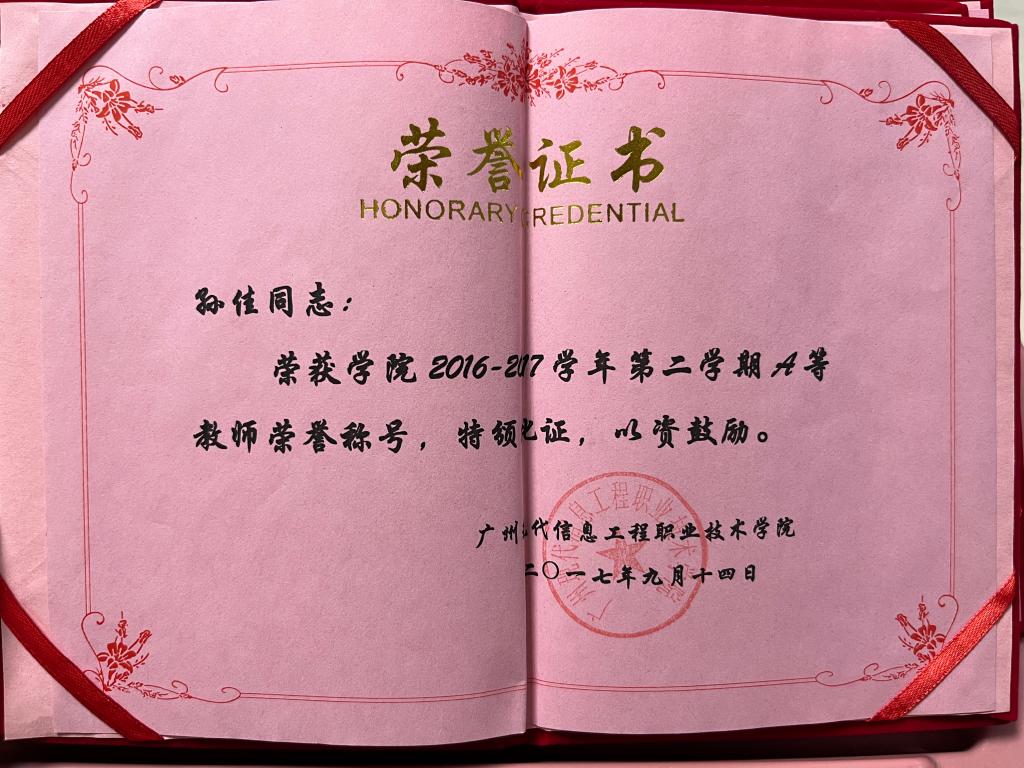 荣誉证书
HONORARY CREDENTIAL
孙佳同志：
荣获学院2016-2017学年第二学期A等
教师荣誉称号，特颁此证，以资鼓励。
广州现代信息工程职业技术学院
二〇一七年九月十四日
广州现代信息工程职业技术学院